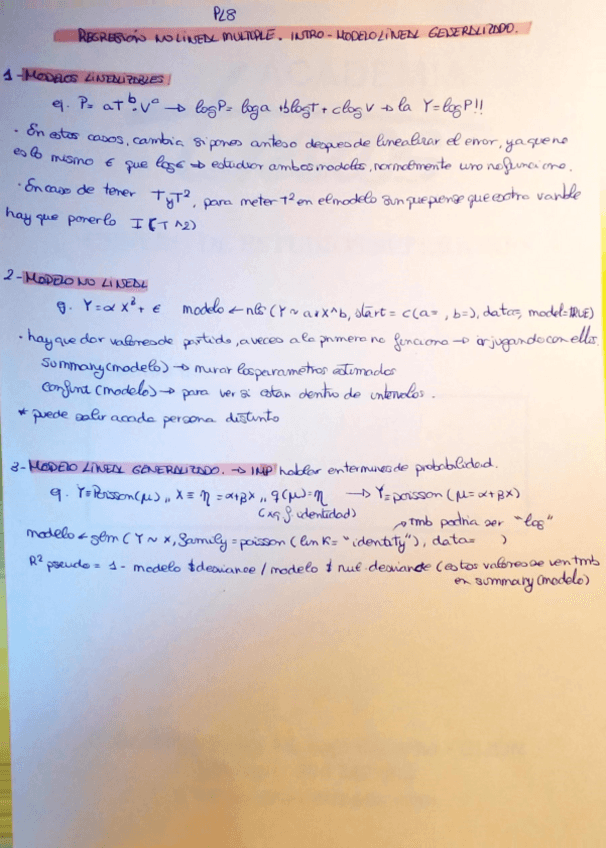 PL8
REGRESIÓN NO LINEAL MULTIPLE. INTRO - MODELO LINEAL GENERALIZADO.
1-MODELOS LINEALIZABLES
ej. P= aT^b·V^c → logP= loga + blogT + clogV → la Y=logP!!
· En estos casos, cambia si pones antes o despues de linealizar el error, ya que no
es lo mismo ε que logε → estudiar ambos modelos, normalmente uno no funciona.
· En caso de tener T y T², para meter T² en el modelo aunque piense que es otra variable
hay que ponerlo I(T^2)
2-MODELO NO LINEAL
ej. Y=αX^β+ε modelo ← nls(Y~a*X^b, start= c(a= , b=), data=, model=TRUE)
· hay que dar valores de partida, a veces a la primera no funciona → ir jugando con ellos.
summary(modelo) → mirar los parametros estimados
confint(modelo) → para ver si estan dentro de intervalos.
* puede salir a cada persona distinto
3-MODELO LINEAL GENERALIZADO. → IMP hablar en terminos de probabilidad.
ej. Y=Poisson(μ) ,, X ≡ η =α+βX ,, g(μ)=η → Y=poisson (μ=α+βX)
identidad)
→ tmb podria ser "log"
modelo ← glm (Y~X, family=poisson (link= "identity"), data= )
R² pseudo = 1 - modelo $deviance / modelo $ null.deviance (estos valores se ven tmb
en summary(modelo)